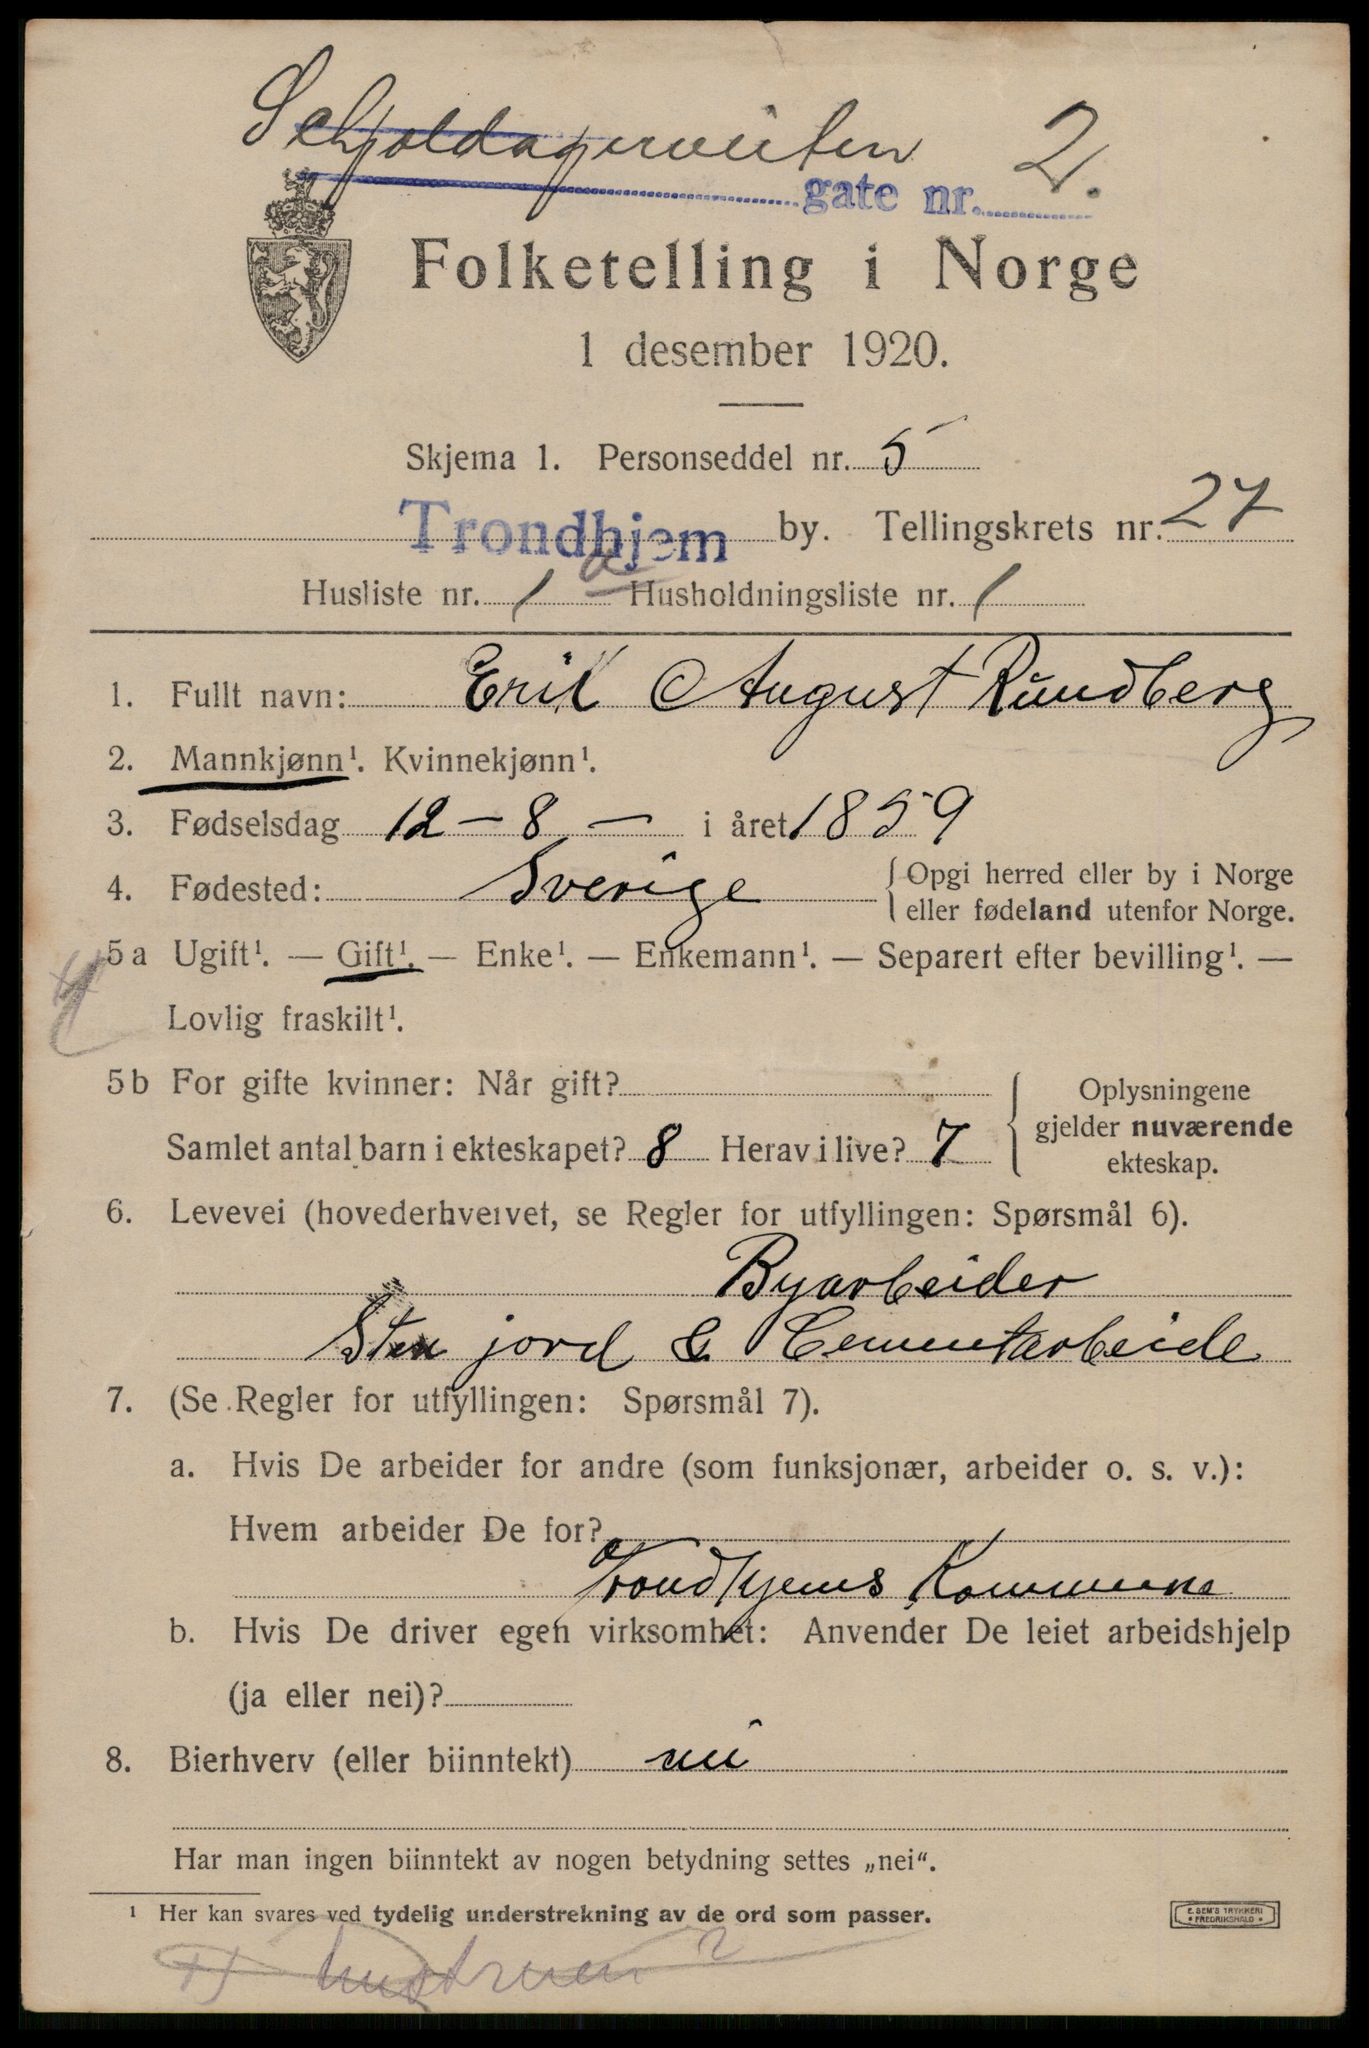 Schjoldagerveiten 2.
gate nr.
Folketelling i Norge
1 desember 1920.
Skjema 1. Personseddel nr. 5
Trondhjem by. Tellingskrets nr. 27
Husliste nr. 1 a Husholdningsliste nr. 1
1. Fullt navn: Erik August Rundberg
2. Mannkjønn¹. Kvinnekjønn¹.
3. Fødselsdag 12 – 8 – i året 1859
4. Fødested: Sverige { Opgi herred eller by i Norge
eller fødeland utenfor Norge.
5a Ugift¹. — Gift¹. — Enke¹. — Enkemann¹. — Separert efter bevilling¹. —
Lovlig fraskilt¹.
5b For gifte kvinner: Når gift?
Samlet antal barn i ekteskapet? 8 Herav i live? 7
Oplysningene
gjelder nuværende
ekteskap.
6. Levevei (hovederhvervet, se Regler for utfyllingen: Spørsmål 6).
Byarbeider
Sten jord & Cementarbeide
7. (Se Regler for utfyllingen: Spørsmål 7).
a. Hvis De arbeider for andre (som funksjonær, arbeider o. s. v.):
Hvem arbeider De for?
Trondhjems Kommune
b. Hvis De driver egen virksomhet: Anvender De leiet arbeidshjelp
(ja eller nei)?
8. Bierhverv (eller biinntekt) nei
Har man ingen biinntekt av nogen betydning settes „nei“.
¹ Her kan svares ved tydelig understrekning av de ord som passer.
E. SEM'S TRYKKERI
FREDRIKSHALD